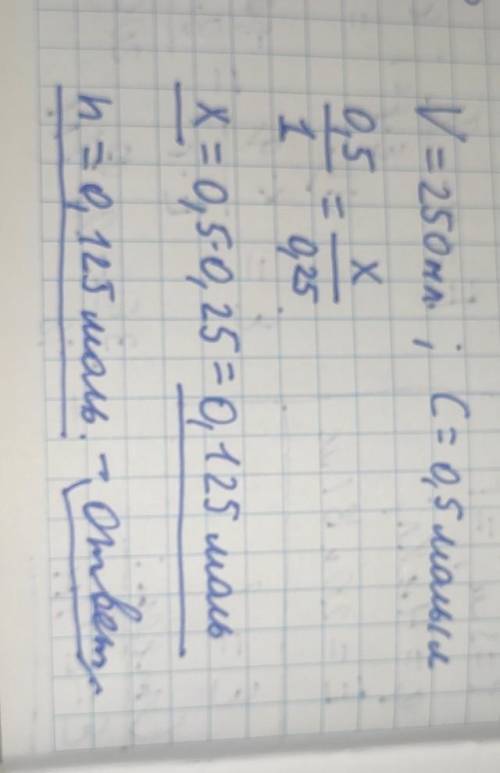 V = 250 мл ; C = 0,5 моль/л
0,5/1 = x/0,25
x = 0,5·0,25 = 0,125 моль
n = 0,125 моль. - ответ